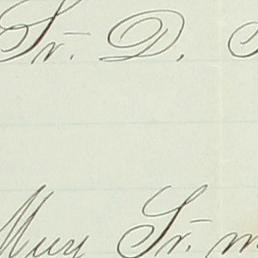 Sr. D.
Muy Sr. m